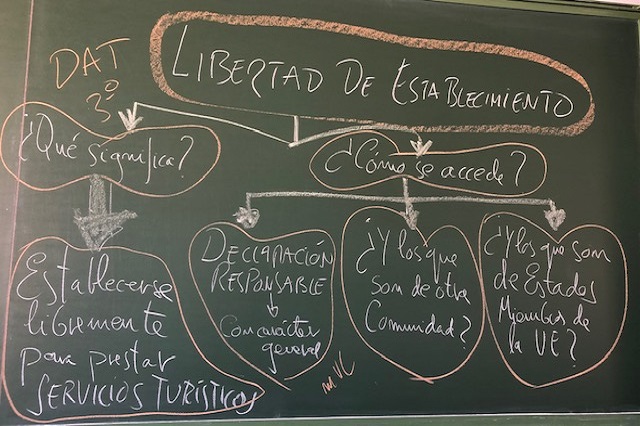 DAT
3º
LIBERTAD DE ESTABLECIMIENTO
¿Qué significa?
¿Cómo se accede?
Establecerse
libremente
para prestar
SERVICIOS TURÍSTICOS
DECLARACIÓN
RESPONSABLE
Con carácter
general
¿Y los que
son de otra
Comunidad?
¿Y los que son
de Estados
Miembros de
la UE?